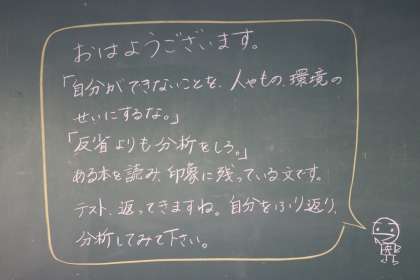 おはようございます。
「自分ができないことを、人やもの、環境の
せいにするな。」
「反省よりも分析をしろ。」
ある本を読み、印象に残っている文です。
テスト、返ってきますね。自分をふり返り、
分析してみて下さい。